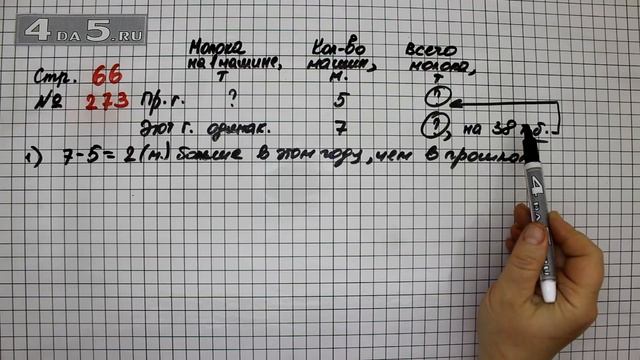 4DA5.RU
Молока на 1 машине, т
Кол-во машин, м.
всего молока, т
Стр. 66
№ 273 Пр. г. ? 5 ?
Этот г. одинак. 7 ?, на 38 т б.
1) 7-5=2(м.) больше в этом году, чем в прошлом
4DA5